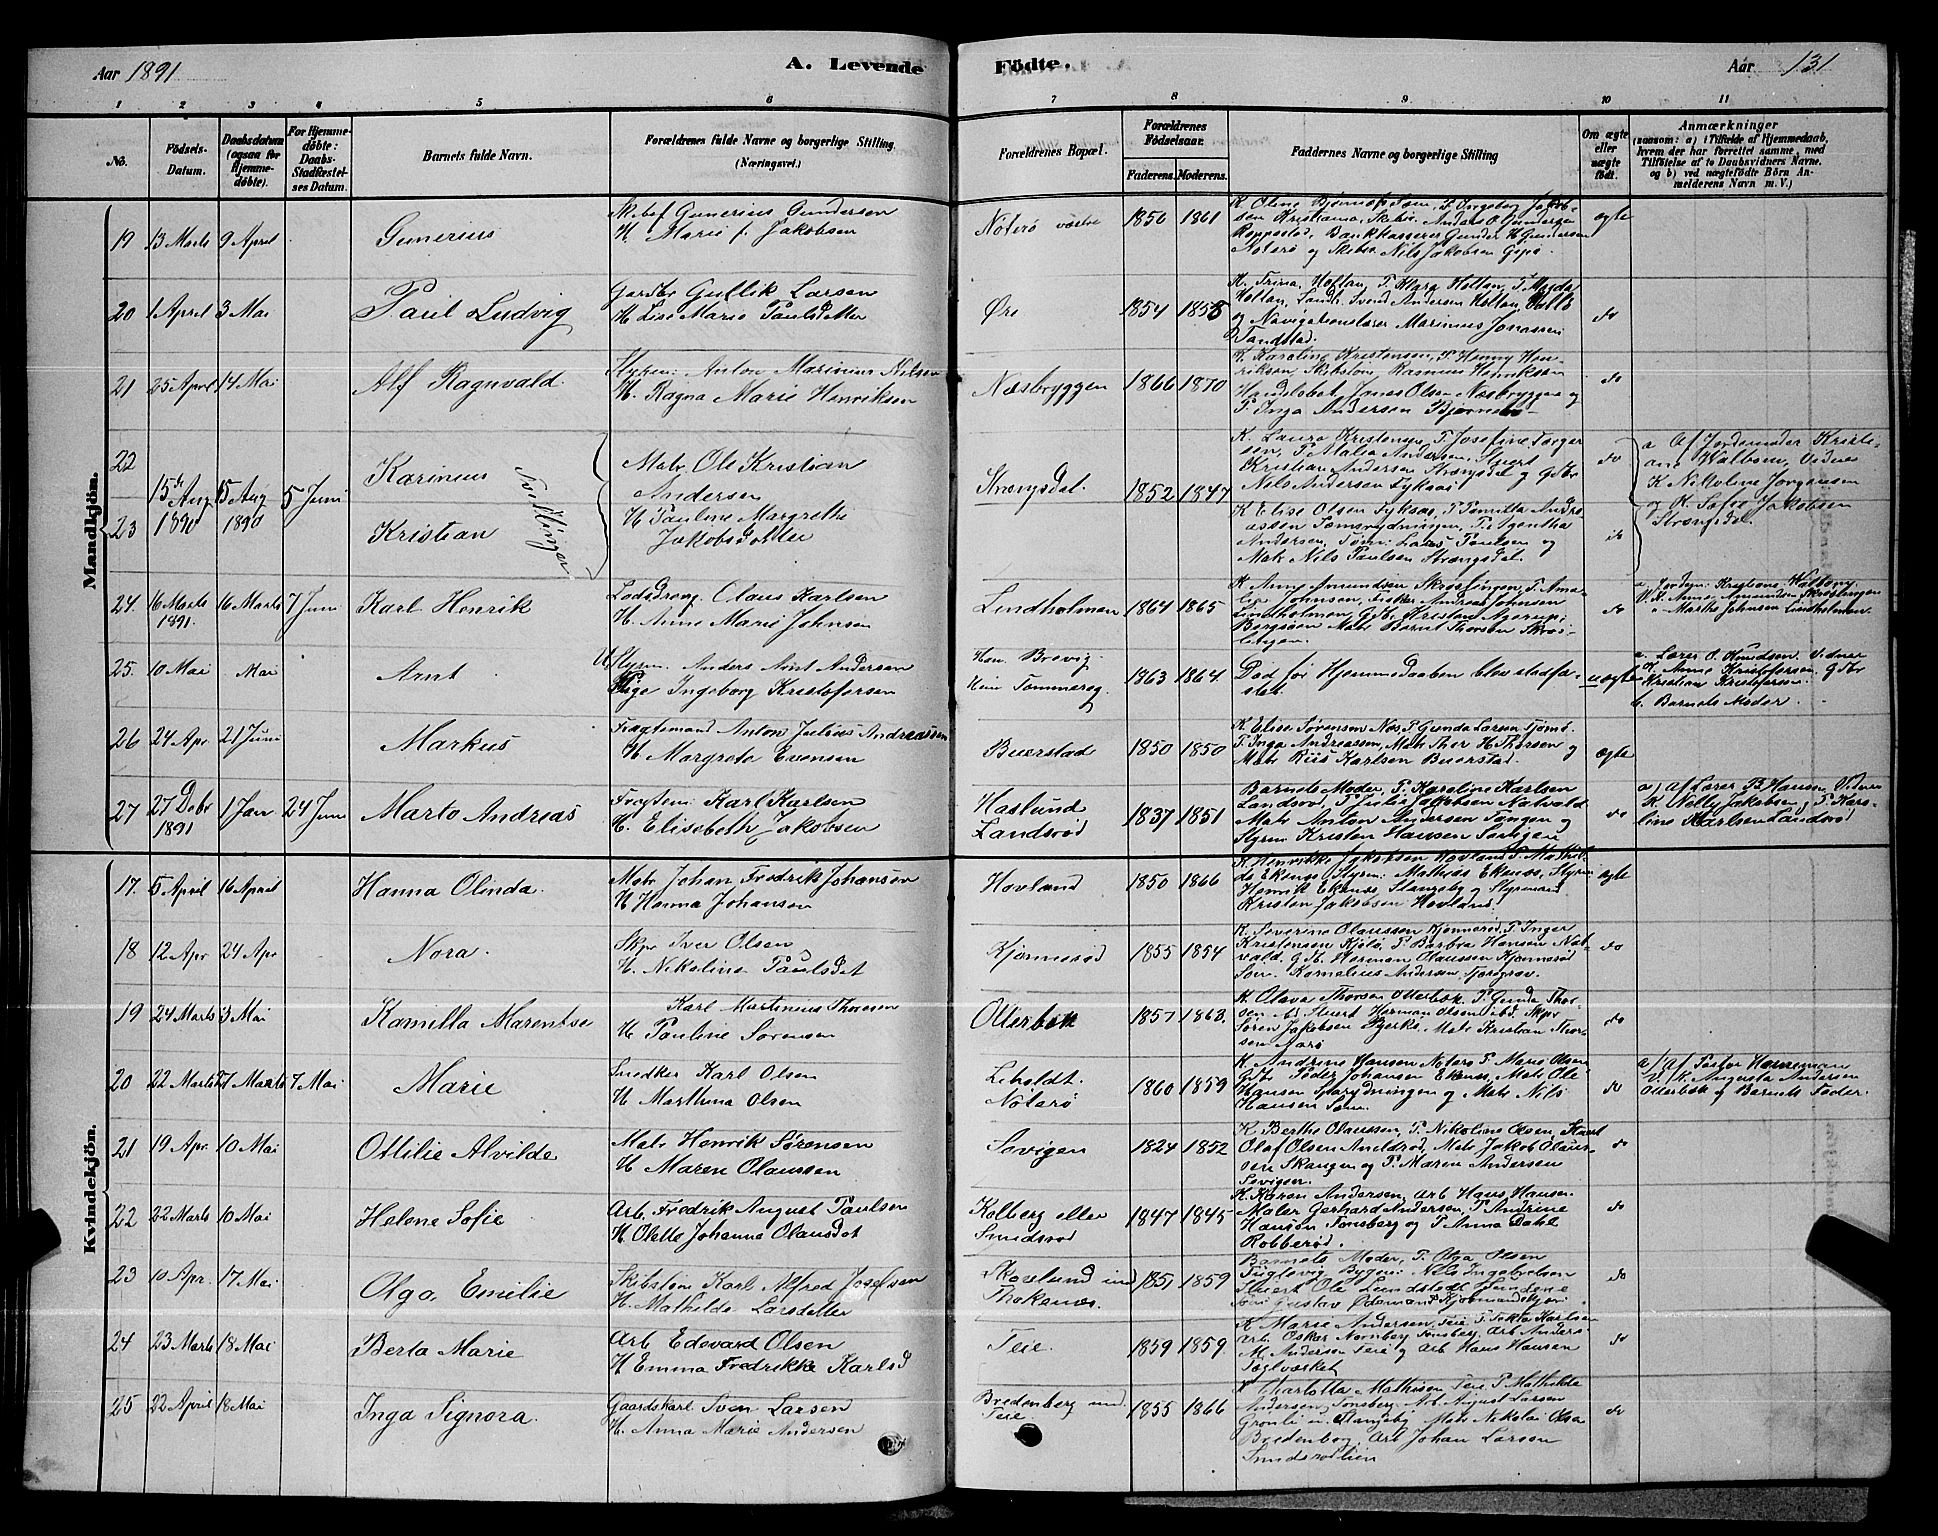 Aar 1891 A. Levende Födte. Aar 131
1 2 3 4 5 6 7 8 9 10 11
No.
Födsels-
Datum.
Daabsdatum
(ogsaa for
Hjemme-
døbte).
For Hjemme-
döbte:
Daabs-
Stadfæstel-
ses Datum.
Barnets fulde Navn.
Forældrenes fulde Navne og borgerlige Stilling
(Næringsvei.)
Forældrenes Bopæl.
Forældrenes
Födselsaar.
Faderens. Moderens.
Faddernes Navne og borgerlige Stilling
Om ægte
eller
uægte
födt.
Anmærkninger
(saasom: a) i Tilfælde af Hjemmedaab,
hvem der har forrettet samme, med
Tilföielse af to Daabsvidners Navne.
og b) ved uægtefödte Börn An-
melderens Navn m. V.)
Mandkjön.
19 13 Marts 9 April Gunerius
Skibsf Gunerius Gundersen
H. Marie f. Jakobsen
Noterö vestre 1856 1861
Roppestad, Bankkasserer Gunder H Gundersen
Noterö og Skibsr. Nils Jakobsen Gipö.
ægte
20 1 April 3 Mai Paul Ludvig
Gardbr Gullik Larsen
H Lise Marie Paulsdatter
Øre 1854 1855
K. Trina Holtan, P. Klara Holtan, P. Magda
Holtan, Landh. Svend Andersen Holtan, Valle
og Navigationslærer Marinius Jonassen
Tandstad.
do
21 25 April 14 Mai Alf Ragnvald.
Styrm: Anton Marinius Nilsen
H. Ragna Marie Henriksen
Næsbryggen 1866 1870
K. Karoline Kristensen, P. Henny Hen-
riksen, Skibstøm. Rasmus Henriksen
Handelsbet. Jonas Olsen Næsbryggen og
P. Inga Andersen Bjørnebo-
do
22 15de Aug 1890 15 Aug 1890 5 Juni Karinius
Tvillinger
23 Kristian
Matr. Ole Kristian
Andersen
H Pauline Margrethe
Jakobsdatter
Strængsdal. 1852 1847
K. Laura Kristensen, P. Josefine Torger
sen, P. Malia Andersen, Stuert
Kristian Andersen Strængsdal og Gdbr
Nils Andersen Fyksaas
K Elise Olsen Fyksas, P. Tomitta Andre
assen Tømsrydningen, P. Agentha
Andersen, Tøm: Lars Paulsen og
Matr Nils Paulsen Strængsdal.
do
do
a Af Jordemoder Kristi-
ane Walbom, Vidner
K Nikoline Jørgensen
og K. Sofie Jakobsen
Strængsdal
24. 16 Marts 1891. 16 Marts 7 Juni Karl Henrik
Lodsdreng. Olaus Karlsen
H. Anne Marie Johnsen
Lindholmen 1864 1865
K Anne Amundsen Skrøslingen, P. Ama-
lie Johnsen, Fisker Andreas Johnsen
Lindholmen Gdbr Kristen Agerup,
Bergsøen Matr Bernt Thorsen Skrøs-
lingen.
do
a. Jordem: Kristiane Walbom
V. K. Anne Amundsen Skrøslingen
" Marthe Johnsen Lindholmen.
25. 10 Mai Mai Arnt
U Styrm. Anders Arnt Andersen
Pige Ingeborg Kristofersen
Han Brevig
Hun Tommerø 1863 1864.
Död før Hjemmedaaben blev stadfæ-
stet.
uægte
a. Lærer O. Knudsen. Vidner
K. Anne Kristofersen. Gdbr
Kristian Kristofersen.
b. Barnets Moder.
26 24 Apr. 21 Juni Markus
Fragtemand Anton Julius Andreassen
H Margrete Evensen
Buerstad 1850 1850
K Elise Sørensen Næs, P. Gunda Larsen Tjømø
P. Inga Andreassen, Matr Thor H. Thorsen og
Matr Riis Karlsen Buerstad.
ægte
27 27 Debr 1891 1 Jan 24 Juni Marto Andreas
Fragtem: Karl Karlsen
H. Elisebeth Jakobsen
Haslund
Landsrød 1837 1851
Barnets Moder, P. Karoline Karlsen
Landsrød, P. Julie Jakobsen Natvald
Matr Anton Andersen Tangen og
Styrm Kristen Hansen Sevigen
do
a) af Lærer B. Hansen, Vidner
K. Nelly Jakobsen, P. Karo-
line Karlsen Landsrød
Kvindekjön.
17. 5 April 16 April Hanna Olinda.
Matr Johan Fredrik Johansen
H Hanna Johansen
Hovland 1850 1866
K. Henrikke Jakobsen Hovland P. Mathil-
de Ekenæs, Styrm: Mathias Ekenæs, Styrm
Henrik Ekenæs, Slangsby og Styrmand
Kristen Jakobsen Hovland
ægte
18 12 Apr 24 Apr Nora.
Skpr Iver Olsen
H. Nikoline Paulsdat
Kjønnerød 1855 1854
K. Severine Olaussen Kjønnerød P. Inger
Kristensen Kjøle, P. Barbra Hansen Nat-
vald. Gdb. Herman Olaussen Kjønnerød
Søm. Kornelius Andersen,
do
19 24 Marts 3 Mai Kamilla Marentse
Karl Martinius Thorsen
H Pauline Sørensen
Otterbek 1857 1863.
K. Olava Thorsen Otterbek, P. Gunda Thor-
sen ibd. Stuert Herman Olsen ibd. Skpr
Søren Jakobsen Bjerke, Matr Kristian Thor-
sen Aarø
do
20 22 Marts 27 Marts 7 Mai Marie
Snedker Karl Olsen
H Marthina Olsen
Leholdt.
Nøterø 1860 1859
K Andrine Hansen Nøterø P. Marie Olsen
Gdbr Peder Johansen Ekenæs, Matr Ole
Hansen Sparydningen og Matr Nils
Hansen Sem.
do
a) Af Pastor Hanneman
V. K. Augusta Andersen
Otterbek og Barnets Fader.
21 19 Apr. 10 Mai Ottilie Alvilde
Matr Henrik Sørensen
H Maren Olaussen
Sevigen 1824 1852
K. Berthe Olaussen, P. Nikoline Olsen,
Olaf Olsen Aneldrød, Matr Jakob Olaus-
sen Skangen og P. Maren Andersen
Sevigen.
do
22 22 Marts 10 Mai Helene Sofie
Arb. Fredrik August Paulsen
H. Olette Johanne Olausdat
Kolberg eller
Smidsrød 1847 1845
K. Karen Andersen, Arb Hans Hansen.
Maler Gerhard Andersen, P. Andrine
Hansen Tønsberg og P. Anna Dahl
Robberød.
do
23 10 Apr. 17 Mai Olga Emilie
Skibstøm Karl Alfred Josefsen
H. Mathilde Larsdatter
Skoglund und
Thokenæs. 1851 1859
Barnets Moder, P. Olga Olsen
Fuglevig, Bygm: Nils Ingebretsen
Stuert Ole Lundstedt
do
24 23 Marts 18 Mai Berta Marie
Arb Edevard Olsen
H Emma Fredrikke Karlsd
Teie. 1859 1859
K Marie Andersen, Teie, P. Tekla Karlsen
Arb. Oskar Nornberg Tønsberg, Arb Anders
M. Andersen Teie og Arb Hans Hansen
Teglværket
do
25 22 April 18 Mai Inga Signora.
Gaardskarl Sven Larsen
H. Anna Marie Andersen
Bredenberg und
Teie 1855 1866
K Charlotta Mathisen Teie P. Mathilde
Andersen Tønsberg, Arb August Larsen
Grønli u. Slangsby Matr Nikolai Olsen
Bredenberg, Arb Johan Larsen
Smidsrødlien
do